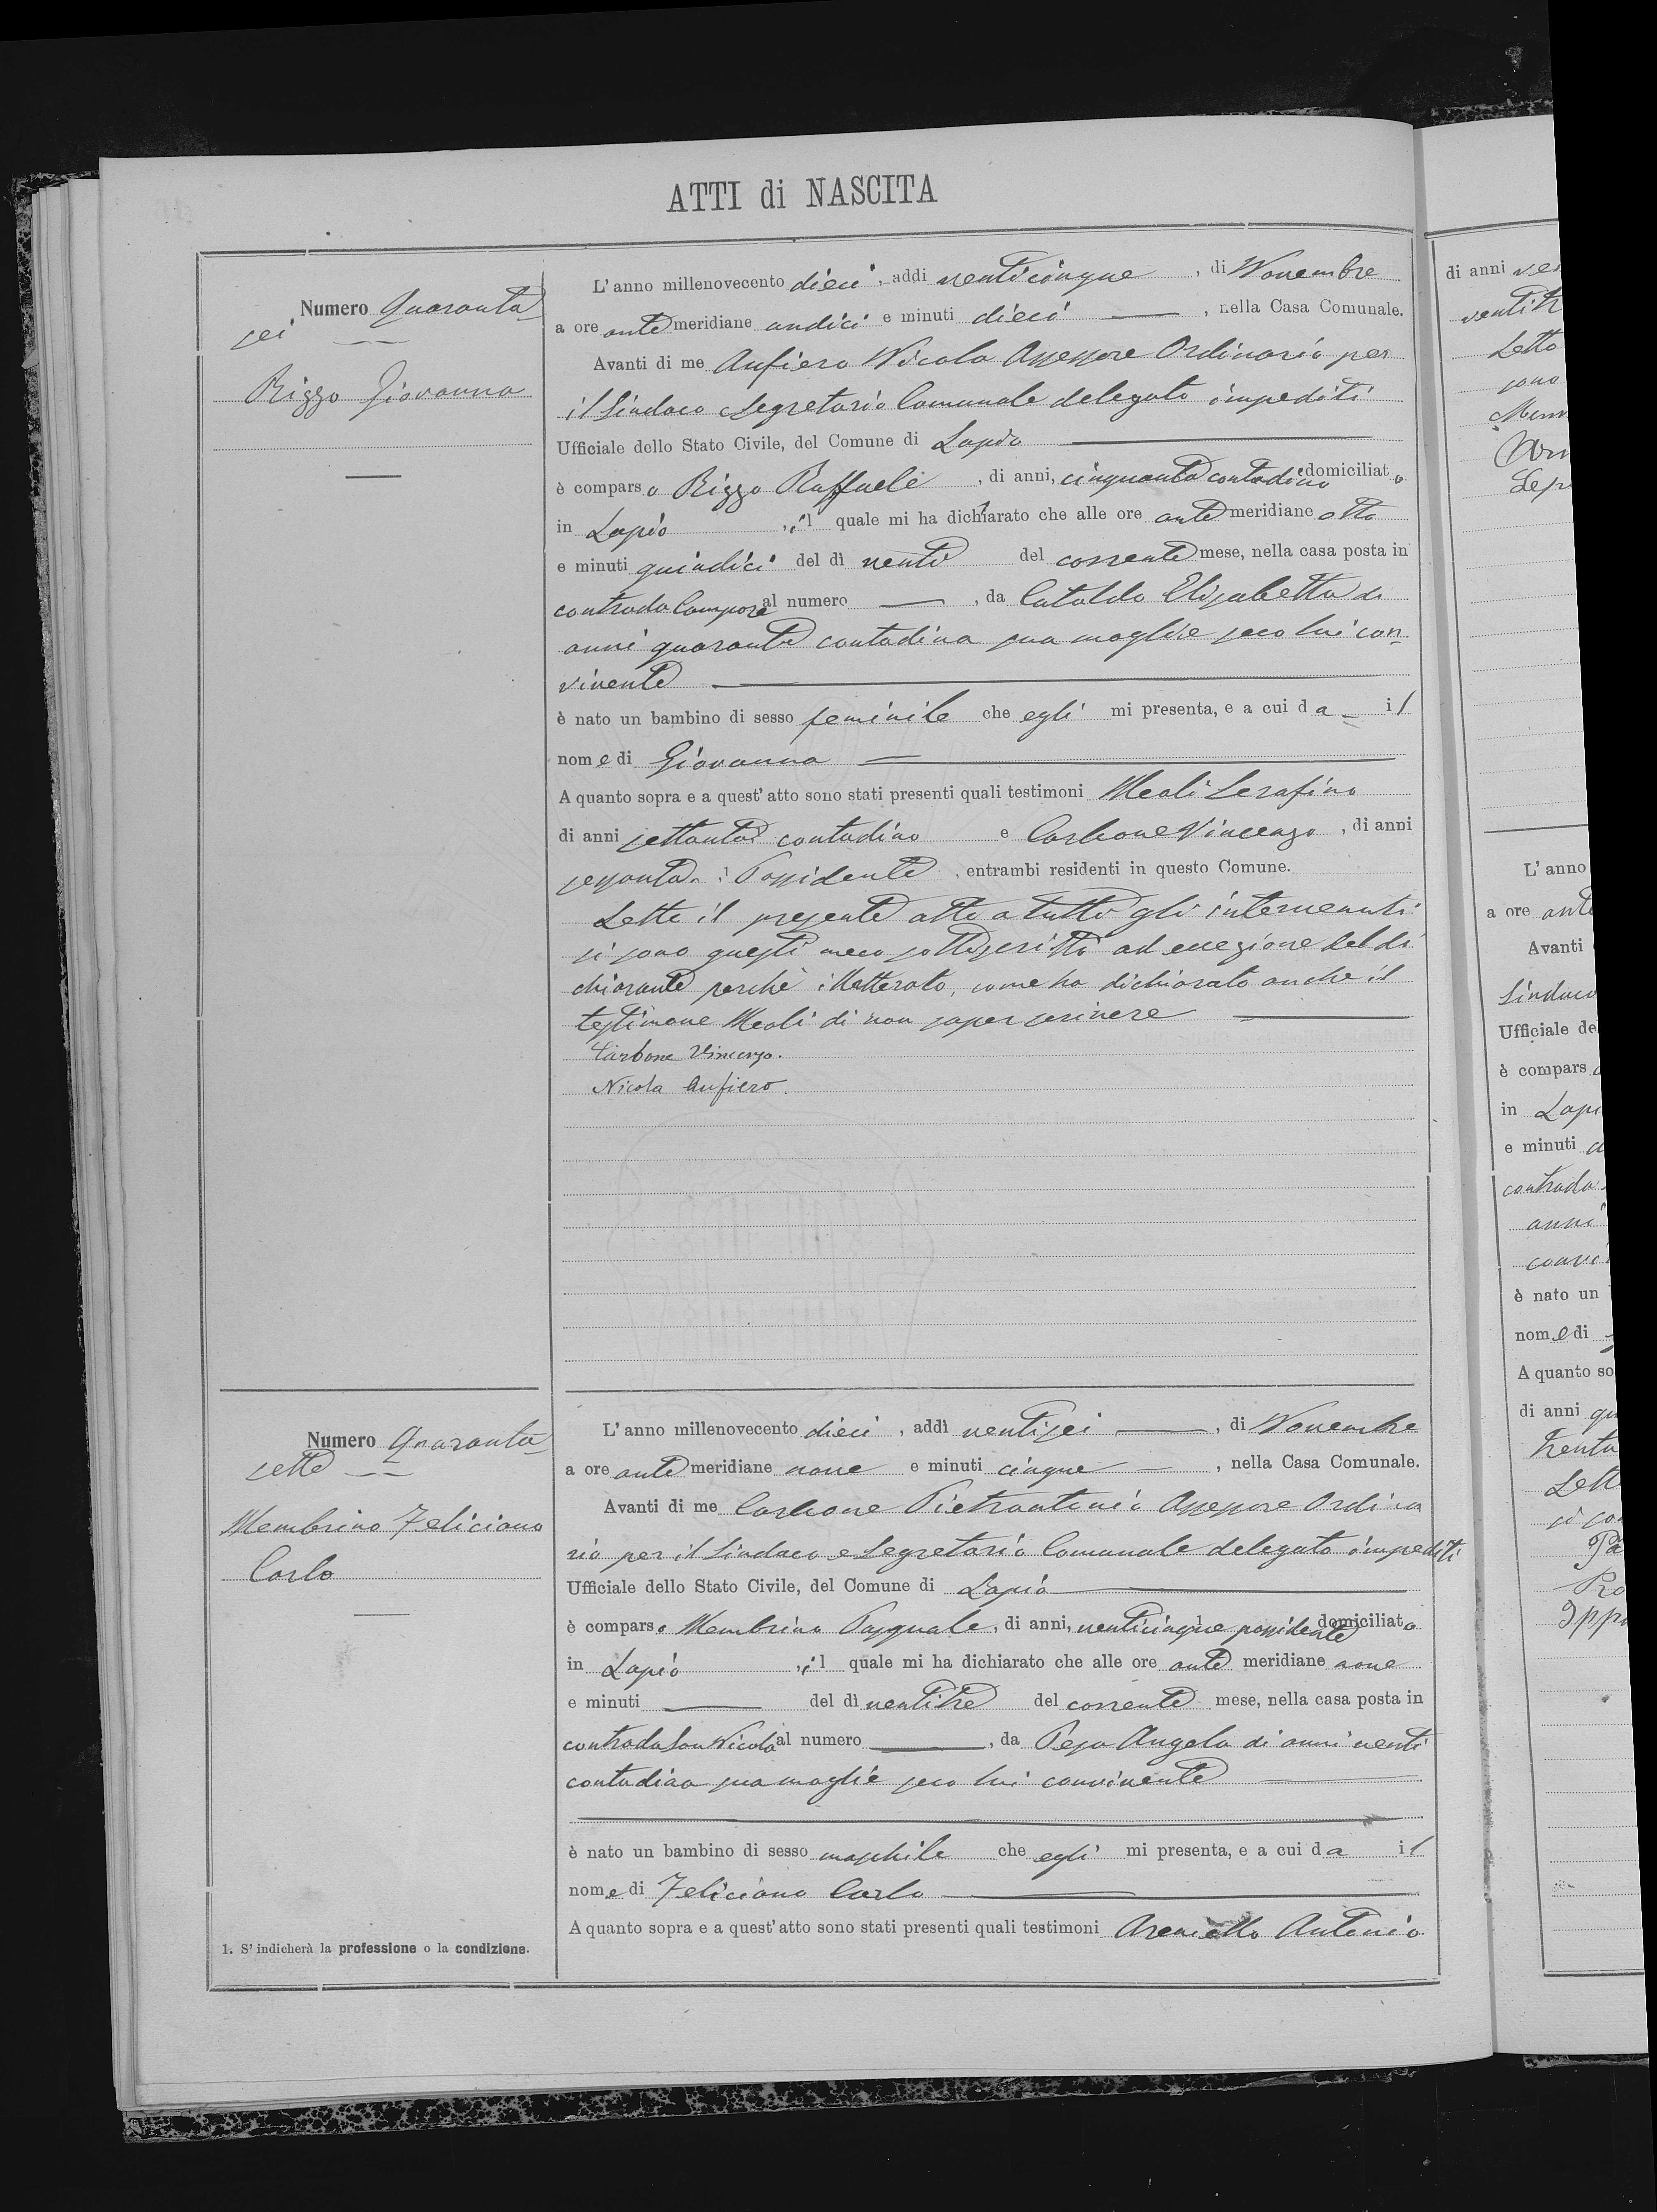 ATTI di NASCITA
Numero Quaranta
sei
Rizzo Giovanna
L'anno millenovecento dieci, addì venticinque, di Novembre
a ore antemeridiane undici e minuti dieci, nella Casa Comunale.
Avanti di me Anfiero Nicola Assessore Ordinario per
il Sindaco e Segretario Comunale delegato impediti
Ufficiale dello Stato Civile, del Comune di Lapio
è comparso Rizzo Raffaele, di anni, cinquanta contadino domiciliato
in Lapio, il quale mi ha dichiarato che alle ore antemeridiane otto
e minuti quindici del dì venti del corrente mese, nella casa posta in
contrada Campore al numero, da Cataldo Elisabetta di
anni quaranta contadina sua moglie seco lui con
vivente
è nato un bambino di sesso feminile che egli mi presenta, e a cui da il
nome di Giovanna
A quanto sopra e a quest'atto sono stati presenti quali testimoni Meoli Serafino
di anni settanta contadino e Carbone Vincenzo, di anni
sessanta Possidente, entrambi residenti in questo Comune.
Letto il presente atto a tutti gli intervenuti
si sono questi meco sottoscritti ad eccezione del di
chiarante perchè illetterato, come ha dichiarato anche il
testimone Meoli di non saper scrivere
Carbone Vincenzo.
Nicola Anfiero.
Numero Quaranta
sette
Membrino Feliciano
Carlo
L'anno millenovecento dieci, addì ventisei, di Novembre
a ore antemeridiane nove e minuti cinque, nella Casa Comunale.
Avanti di me Carbone Pietrantonio Assessore Ordina
rio per il Sindaco e Segretario Comunale delegato impediti
Ufficiale dello Stato Civile, del Comune di Lapio
è comparso Membrino Pasquale, di anni, venticinque possidente domiciliato
in Lapio, il quale mi ha dichiarato che alle ore ante meridiane nove
e minuti del dì ventitre del corrente mese, nella casa posta in
contrada San Nicola al numero, da Pepa Angela di anni venti
contadina sua moglie seco lui convivente
è nato un bambino di sesso maschile che egli mi presenta, e a cui da il
nome di Feliciano Carlo
A quanto sopra e a quest'atto sono stati presenti quali testimoni Areniello Antonio
1. S'indicherà la professione o la condizione.
di anni
Letto
sono
L'anno
a ore ante
Avanti
Sindaco
Ufficiale de
è compars
in Lapi
e minuti
contrada
anni
convi
è nato un
nome di
A quanto so
di anni
trenta
Lett